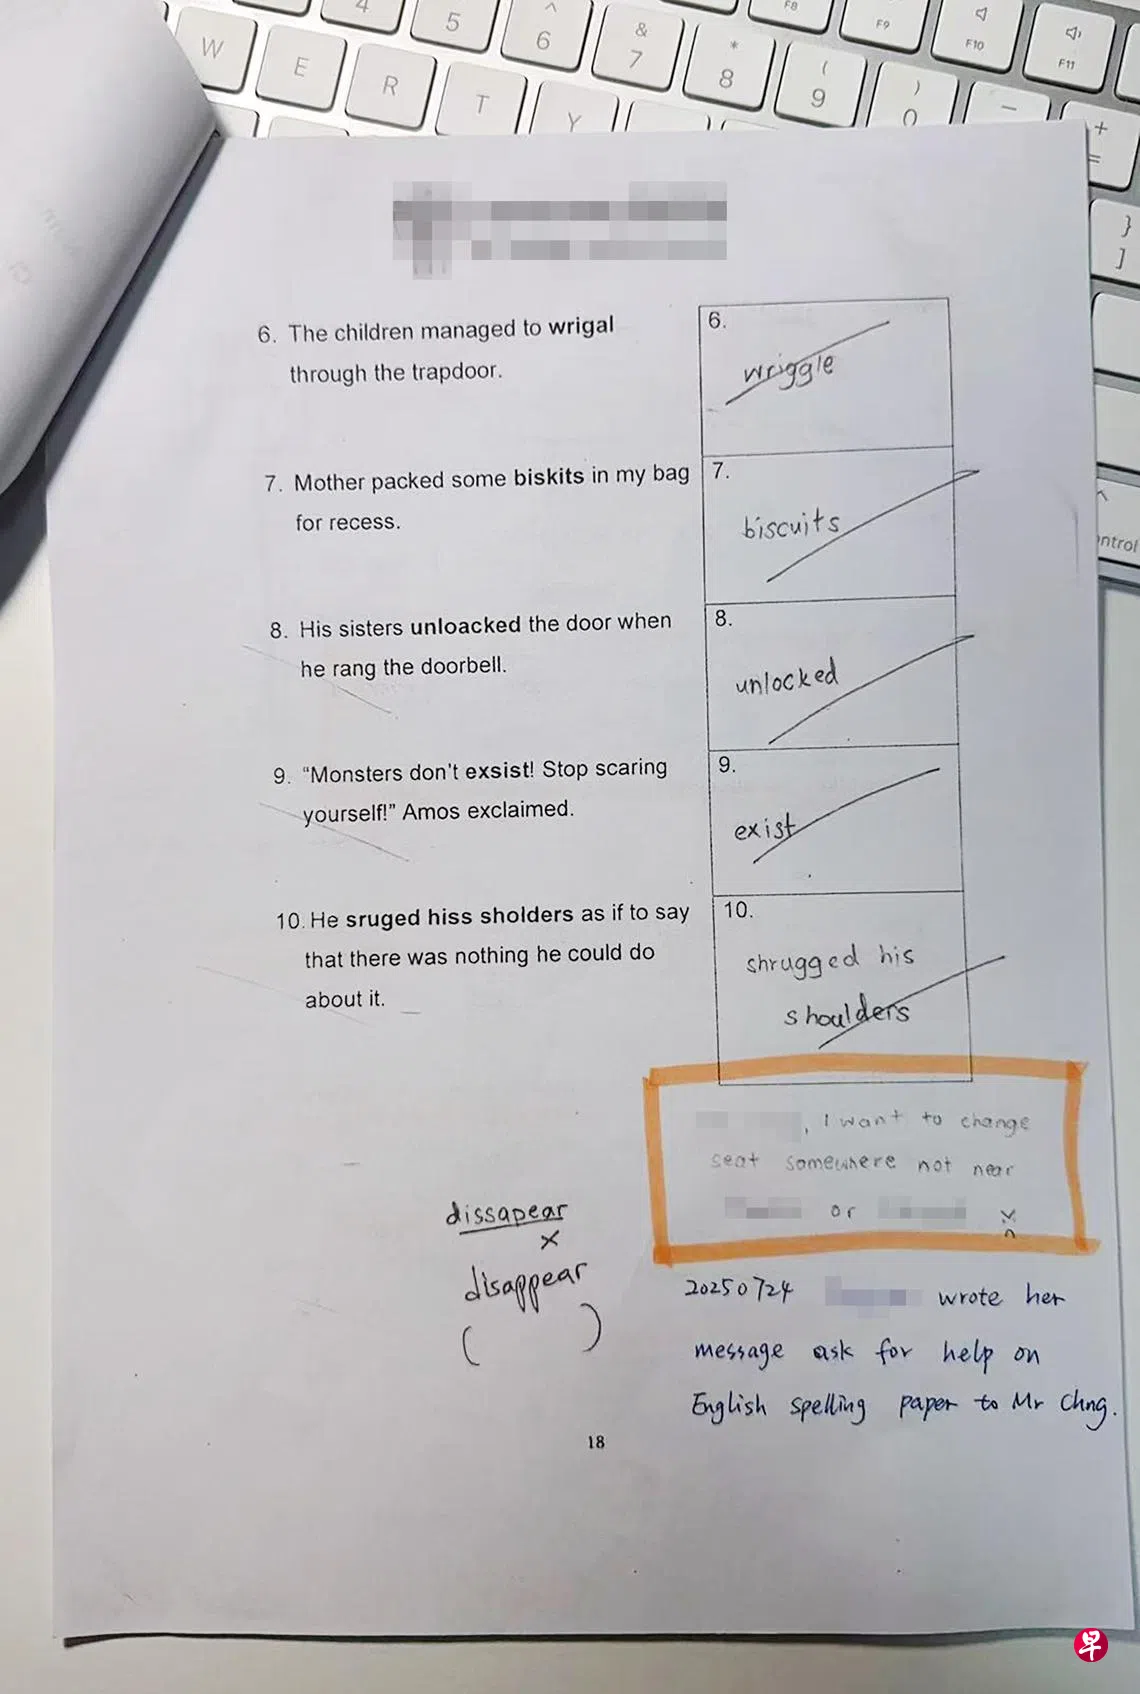 4
5
^
6
&
7
*
8
(
9
)
0
–
+
=
F8
F9
F10
F11
W
E
R
T
Y
}
]
^
ntrol
6. The children managed to wrigal
through the trapdoor.
6.
wriggle
7. Mother packed some biskits in my bag
for recess.
7.
biscuits
8. His sisters unloacked the door when
he rang the doorbell.
8.
unlocked
9. “Monsters don't exsist! Stop scaring
yourself!” Amos exclaimed.
9.
exist
10. He sruged hiss sholders as if to say
that there was nothing he could do
about it.
10.
shrugged his
shoulders
, I want to change
seat somewhere not near
or
dissapear
×
disappear
( )
20250724 wrote her
message ask for help on
English spelling paper to Mr Chng.
18
早